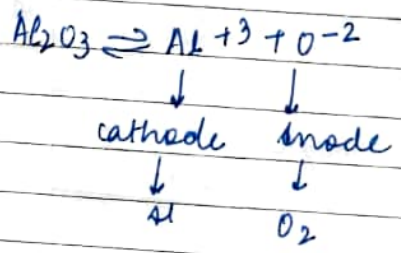 Al2O3 ⇌ Al +3 + O-2
↓ ↓
cathode Anode
↓ ↓
Al O2